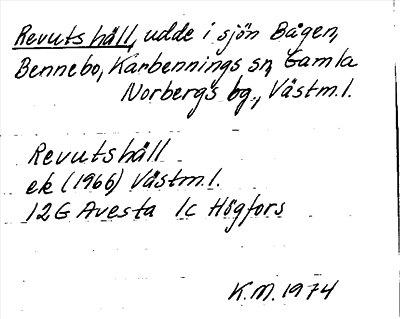 Revuts häll, udde i sjön Bågen,
Bennebo, Karbennings sn, Gamla
Norbergs bg., Västm.l.
Revutshäll
ek (1966) Västm.l.
12G Avesta 1c Högfors
K.M. 1974